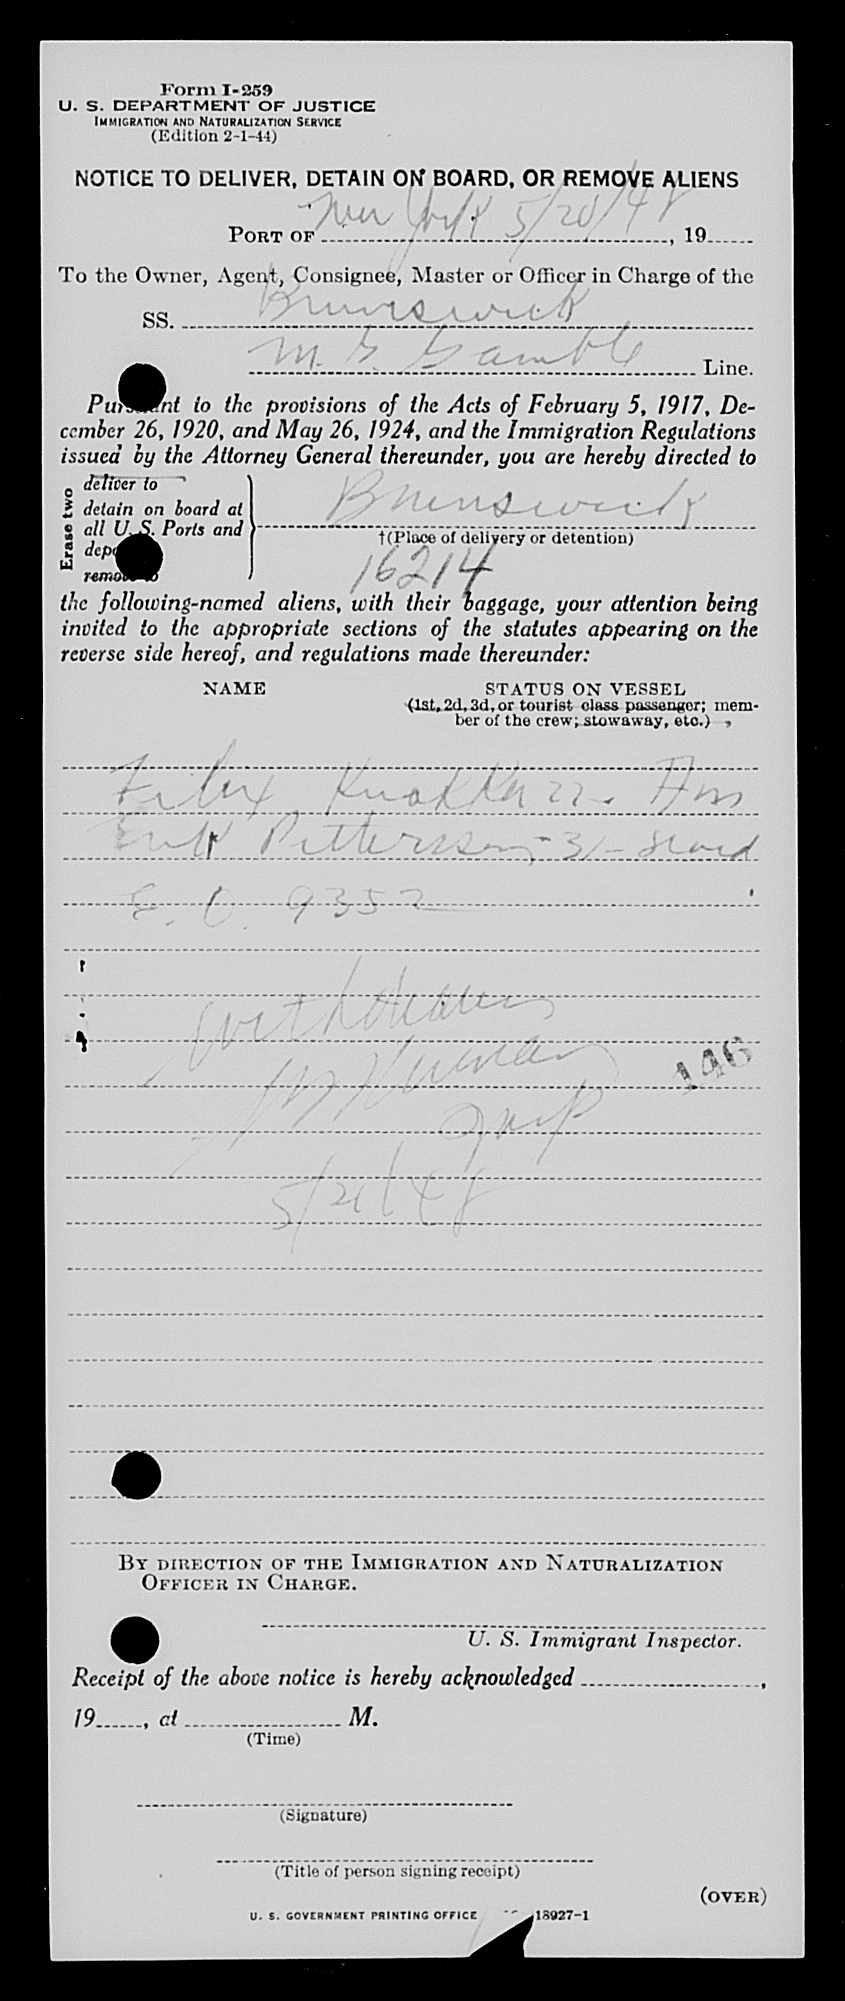 Form I-259
U. S. DEPARTMENT OF JUSTICE
IMMIGRATION AND NATURALIZATION SERVICE
(Edition 2-1-44)
NOTICE TO DELIVER, DETAIN ON BOARD, OR REMOVE ALIENS
PORT OF New York 5/20/48, 19
To the Owner, Agent, Consignee, Master or Officer in Charge of the
SS. Brunswick
M. G. Gamble Line.
Pursuant to the provisions of the Acts of February 5, 1917, De-
cember 26, 1920, and May 26, 1924, and the Immigration Regulations
issued by the Attorney General thereunder, you are hereby directed to
Erase two
deliver to
detain on board at
all U. S. Ports and
remove to
Brunswick
†(Place of delivery or detention)
16214
the following-named aliens, with their baggage, your attention being
invited to the appropriate sections of the statutes appearing on the
reverse side hereof, and regulations made thereunder:
NAME
STATUS ON VESSEL
(1st, 2d, 3d, or tourist class passenger; mem-
ber of the crew; stowaway, etc.)
22
Erik Pettersson - 31
9352
146
5/21/48
BY DIRECTION OF THE IMMIGRATION AND NATURALIZATION
OFFICER IN CHARGE.
U. S. Immigrant Inspector.
Receipt of the above notice is hereby acknowledged ,
19 , at M.
(Time)
(Signature)
(Title of person signing receipt)
(OVER)
U. S. GOVERNMENT PRINTING OFFICE 18927-1